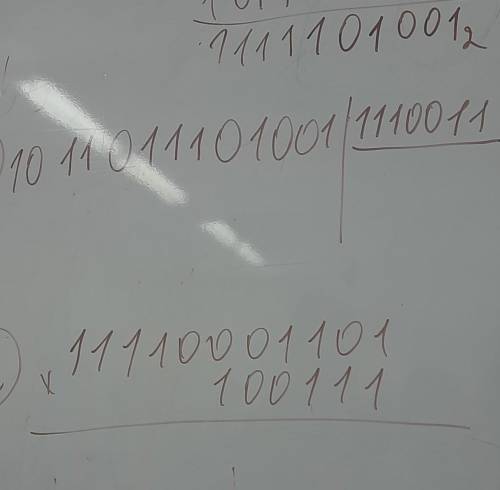 1111101001₂
1011011101001 | 1110011
11110001101
x 100111